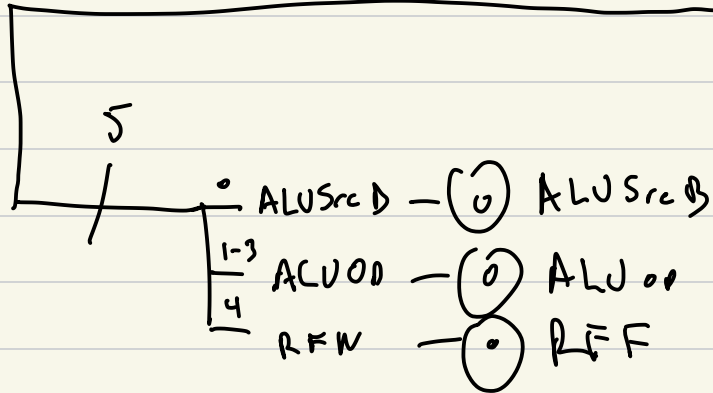 5
0 ALUSrc B — 0 ALUSrc B
1-3 ALUOP — 0 ALUOP
4 RFW — 0 RFF